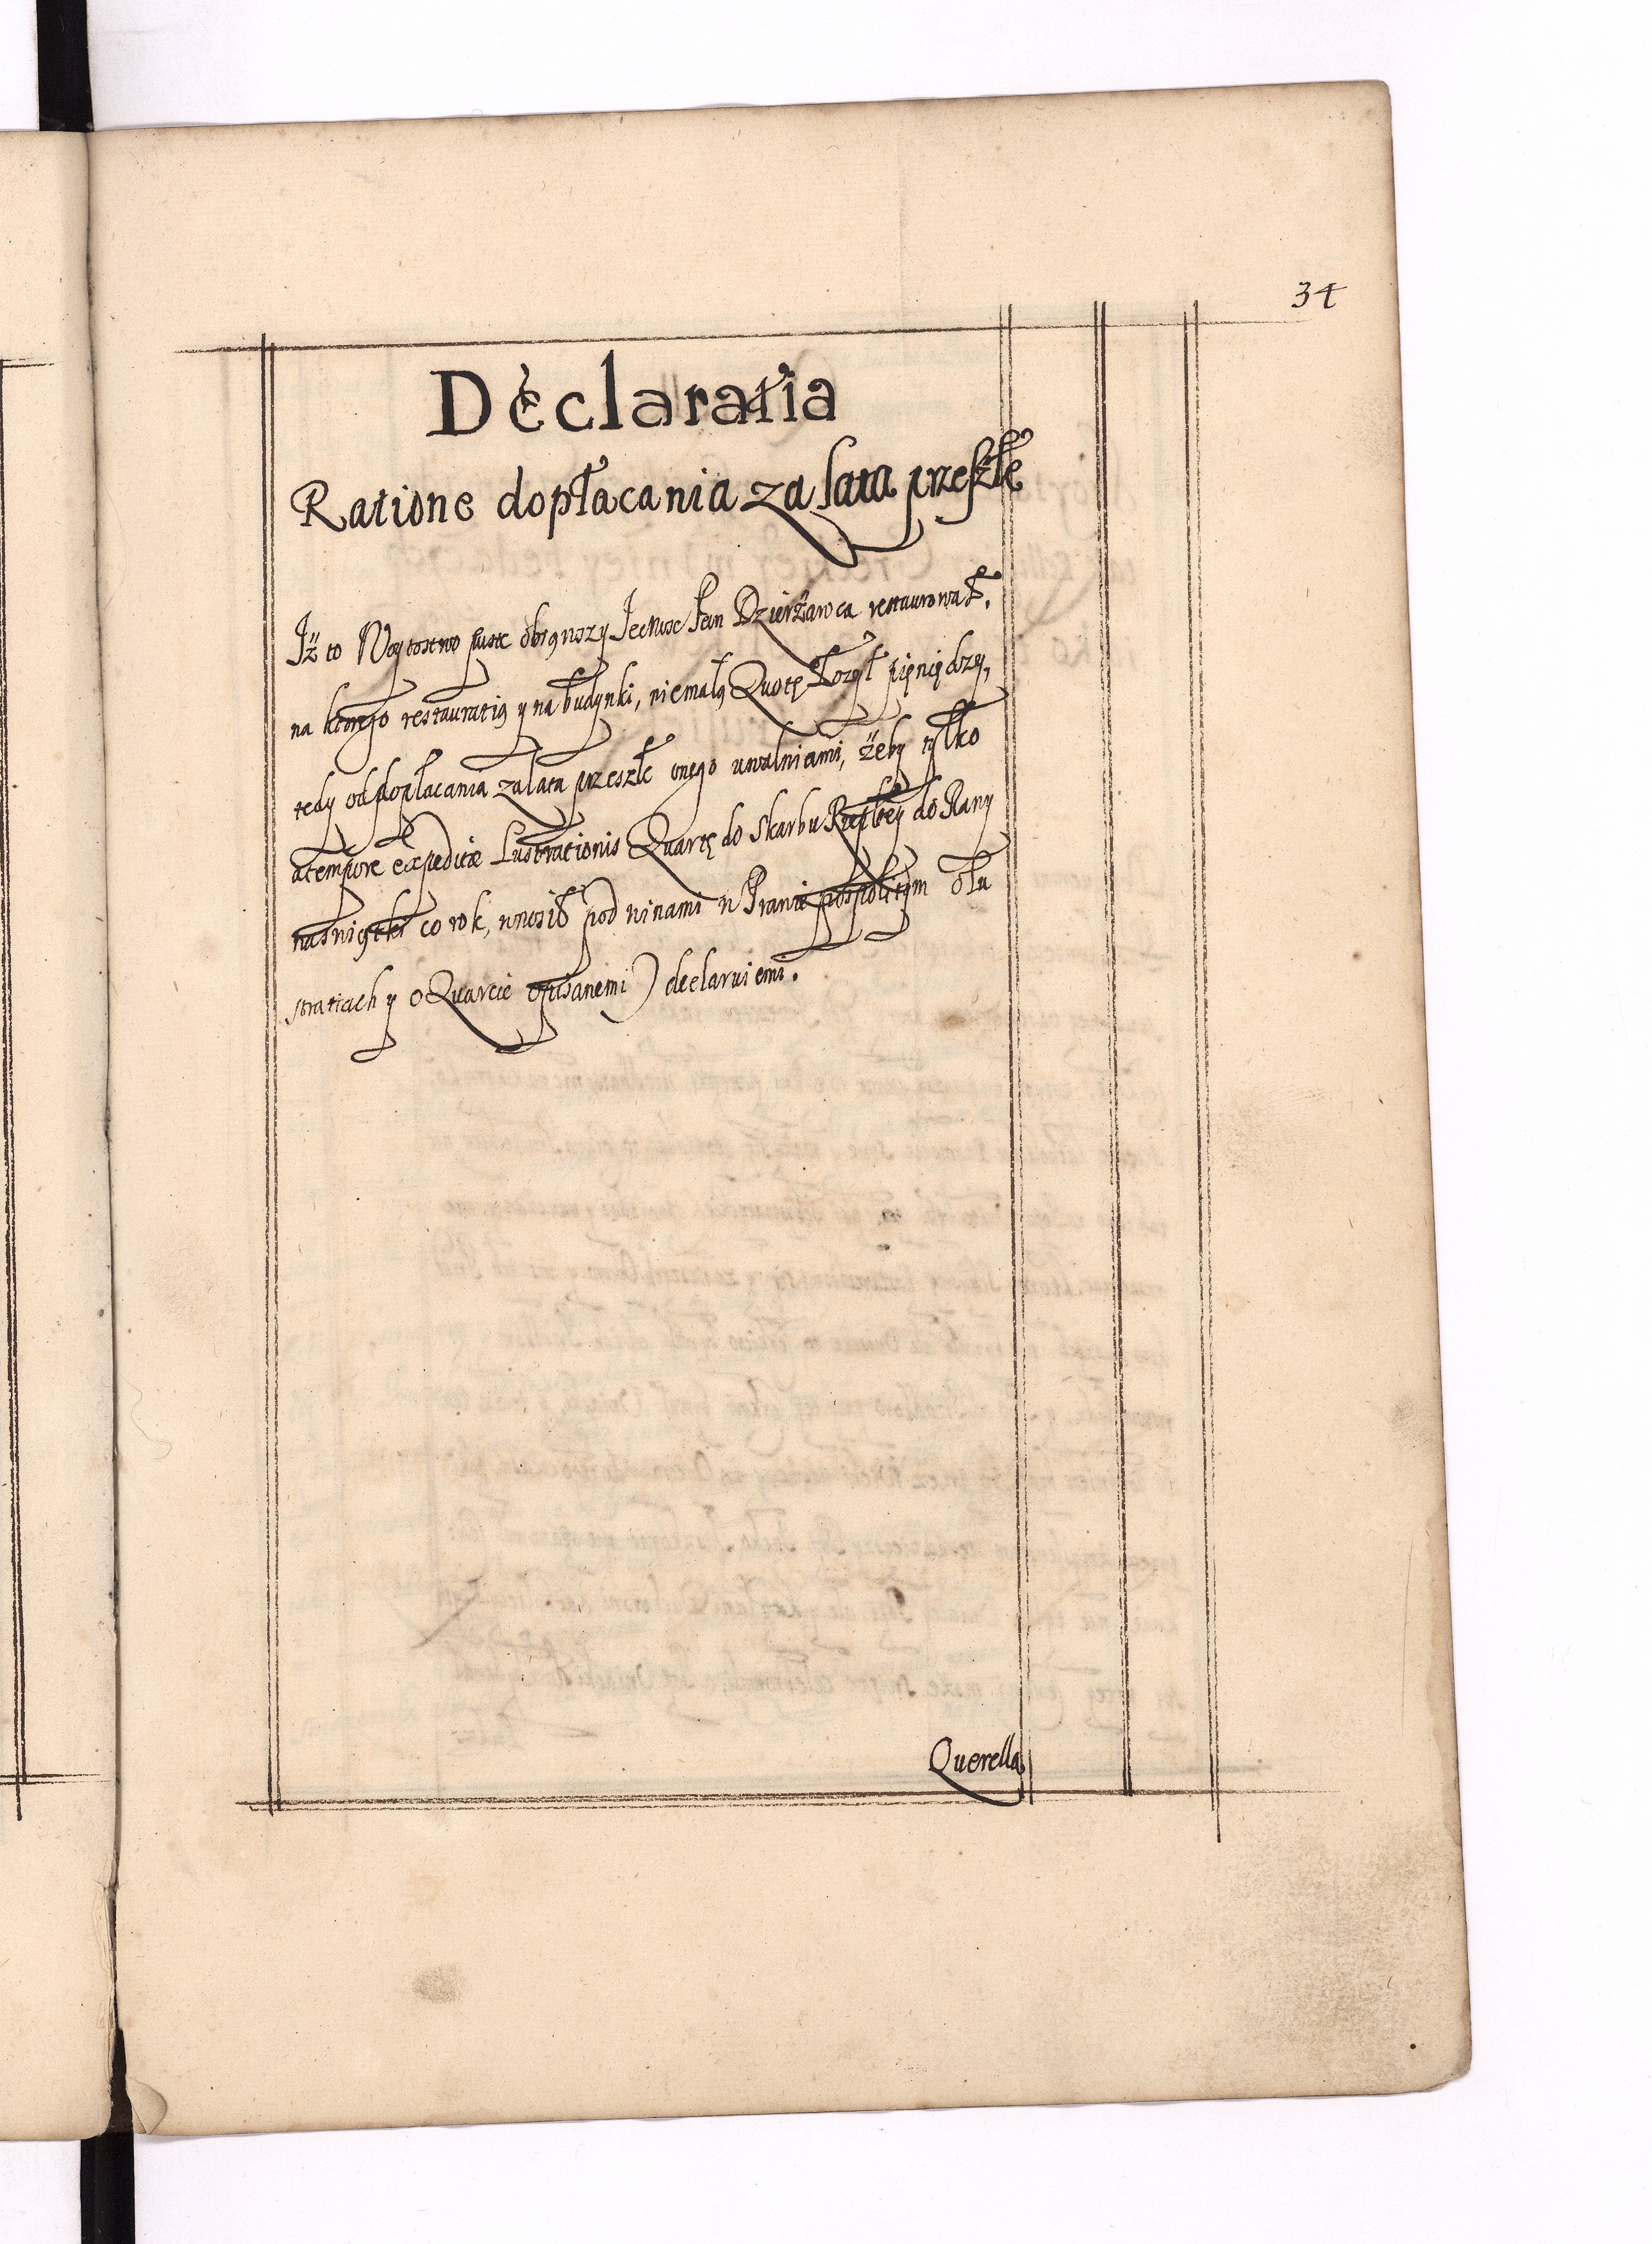 34
Declaratia
Ratione dopłacania za lata przeszłe
Iż to Woytostwo puste obiąwszy Jegmosc Pan Dzierżawca restaurował,
na ktorego restauratią y na budynki, niemałą Quotę łozył pięniędzy,
tedy od dopłacania za lata przeszłe onego uwalniamÿ, żeby tylko
a tempore expeditæ Lustrationis Quartę do Skarbu Rzeptey do Rawy
na świątki co rok, wnosił pod winami w Prawie pospolitym o lu
stratiach y o Quarcie opisanemi) declaruiemÿ.
Querella